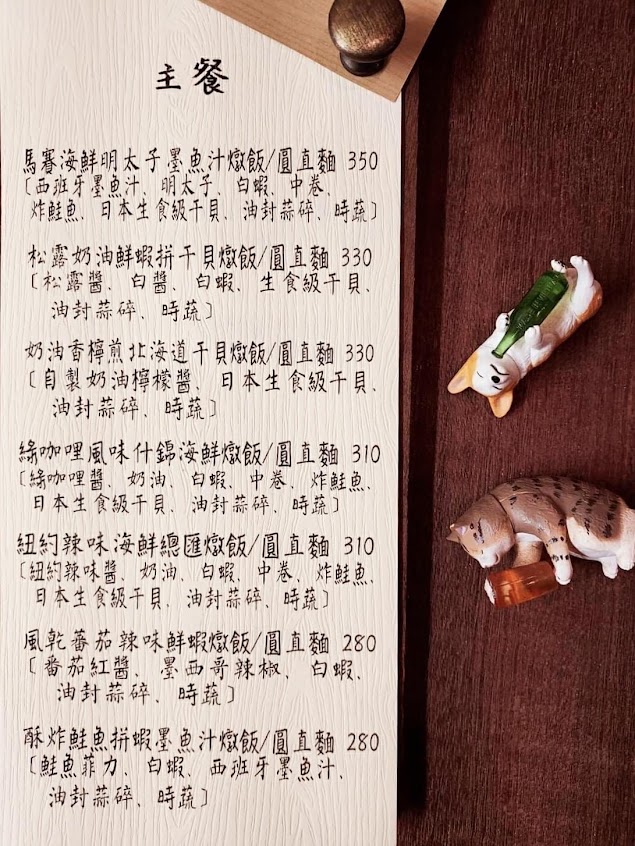 主餐
馬賽海鮮明太子墨魚汁燉飯/圓直麵 350
〔西班牙墨魚汁、明太子、白蝦、中卷、
炸鮭魚、日本生食級干貝、油封蒜碎、時蔬〕
松露奶油鮮蝦拼干貝燉飯/圓直麵 330
〔松露醬、白醬、白蝦、生食級干貝、
油封蒜碎、時蔬〕
奶油香檸煎北海道干貝燉飯/圓直麵 330
〔自製奶油檸檬醬、日本生食級干貝、
油封蒜碎、時蔬〕
綠咖哩風味什錦海鮮燉飯/圓直麵 310
〔綠咖哩醬、奶油、白蝦、中卷、炸鮭魚、
日本生食級干貝、油封蒜碎、時蔬〕
紐約辣味海鮮總匯燉飯/圓直麵 310
〔紐約辣味醬、奶油、白蝦、中卷、炸鮭魚、
日本生食級干貝、油封蒜碎、時蔬〕
風乾蕃茄辣味鮮蝦燉飯/圓直麵 280
〔番茄紅醬、墨西哥辣椒、白蝦、
油封蒜碎、時蔬〕
酥炸鮭魚拼蝦墨魚汁燉飯/圓直麵 280
〔鮭魚菲力、白蝦、西班牙墨魚汁、
油封蒜碎、時蔬〕